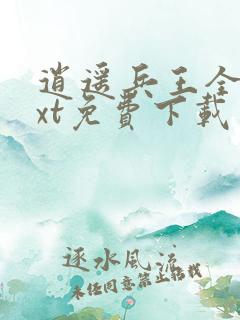 逍遥兵王全
xt免费下载
逐水风流
未经同意禁止转载